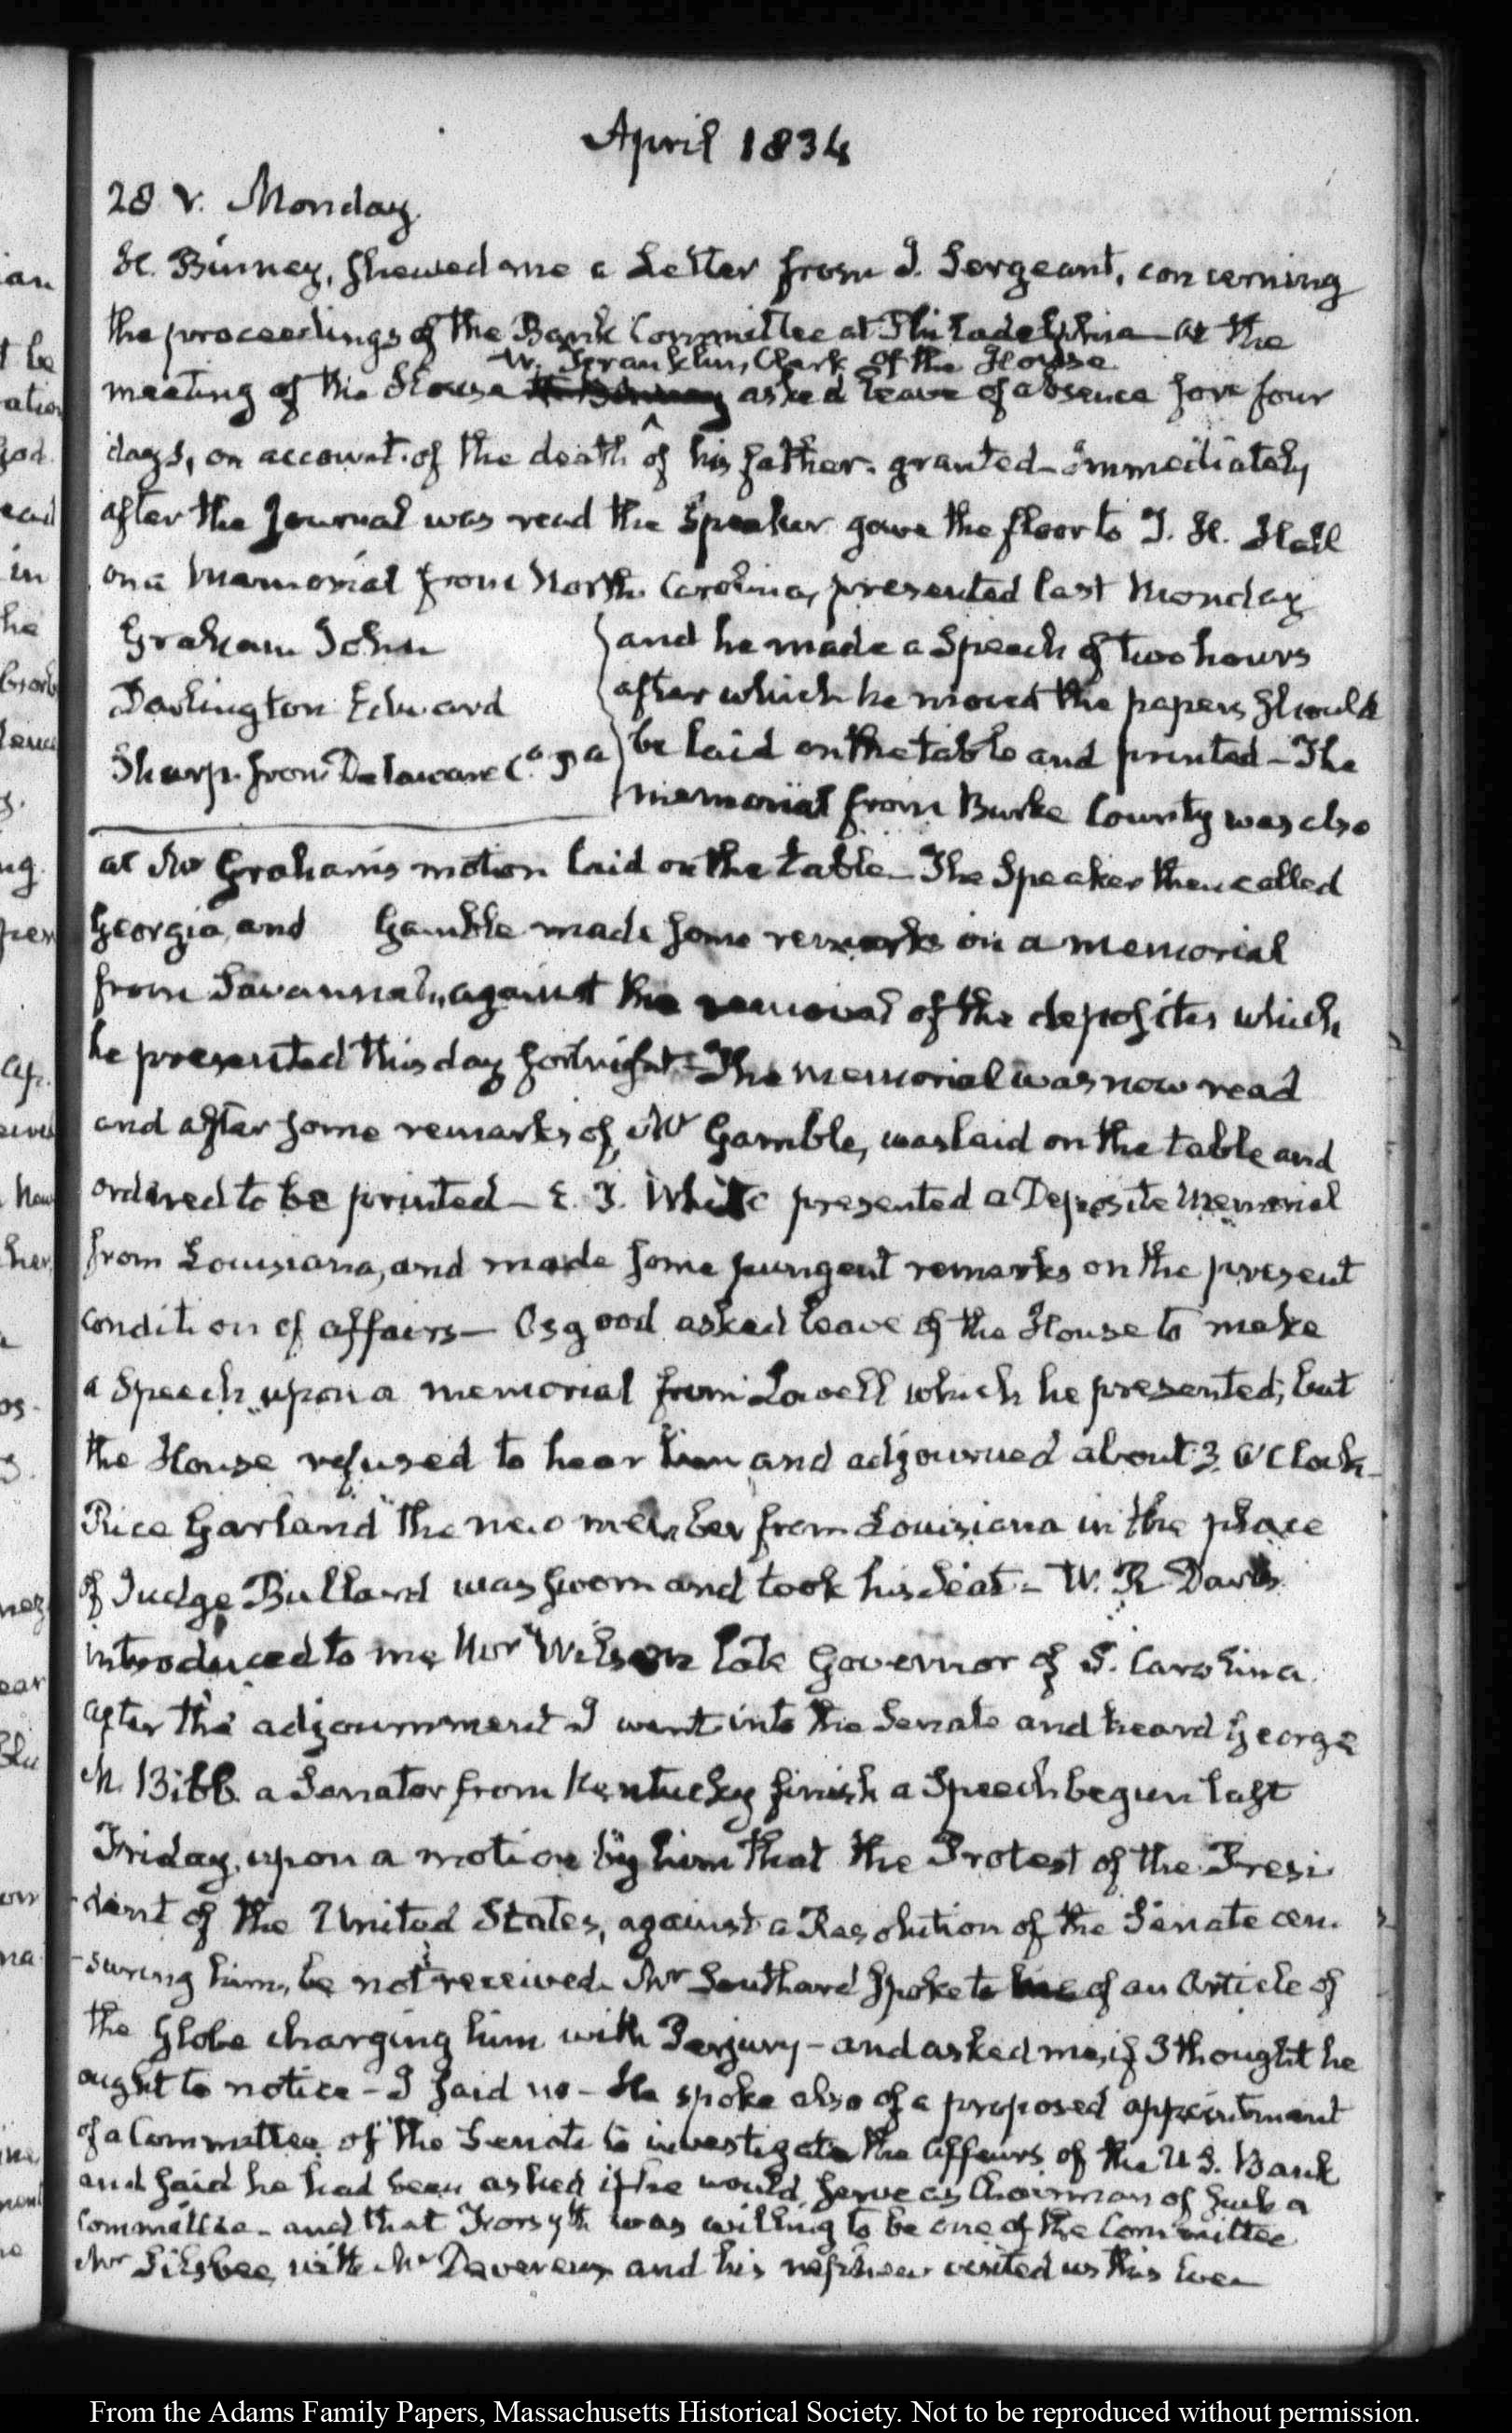 April 1834
28 V. Monday.
H. Binney, shewed me a Letter from J. Sergeant, concerning
the proceedings of the Bank Committee at Philadelphia— At the
W. Franklin, Clerk of the House
meeting of the House H. Binney asked leave of absence for four
days, on account of the death ^ of his father. granted— Immediately
after the Journal was read the Speaker gave the floor to T. H. Hall
on a Memorial from North Carolina, presented last Monday
Graham John
Darlington Edward
Sharp. from Delaware Co. Pa
and he made a Speech of two hours
after which he moved the papers should
be laid on the table and printed— The
memorial from Burke County was also
at Mr Graham's motion laid on the table— The Speaker then called
Georgia, and Gamble made some remarks on a memorial
from Savannah, against the removal of the deposites which
he presented this day fortnight— The memorial was now read
and after some remarks of Mr Gamble, was laid on the table and
ordered to be printed— E. D. White presented a Deposite Memorial
from Louisiana, and made some pungent remarks on the present
condition of affairs— Osgood asked leave of the House to make
a Speech upon a memorial from Lowell which he presented; but
the House refused to hear him and adjourned about 3. O'Clock—
Rice Garland the new member from Louisiana in the place
of Judge Bullard was sworn and took his Seat— W. R. Davis
introduced to me Mr Wilson late Governor of S. Carolina.
After the adjournment I went into the Senate and heard George
M. Bibb a Senator from Kentucky finish a Speech begun last
Friday, upon a motion by him that the Protest of the Presi
-dent of the United States, against a Resolution of the Senate cen
-suring him, be not received. Mr Southard spoke to me of an Article of
the Globe charging him with Perjury— and asked me, if I thought he
ought to notice— I said no— He spoke also of a proposed appointment
of a Committee of the Senate to investigate the affairs of the U.S. Bank
and said he had been asked if he would serve as Chairman of such a
Committee— and that Forsyth was willing to be one of the Committee
Mr Silsbee with Mr Devereux and his nephew visited us this Eve—
From the Adams Family Papers, Massachusetts Historical Society. Not to be reproduced without permission.